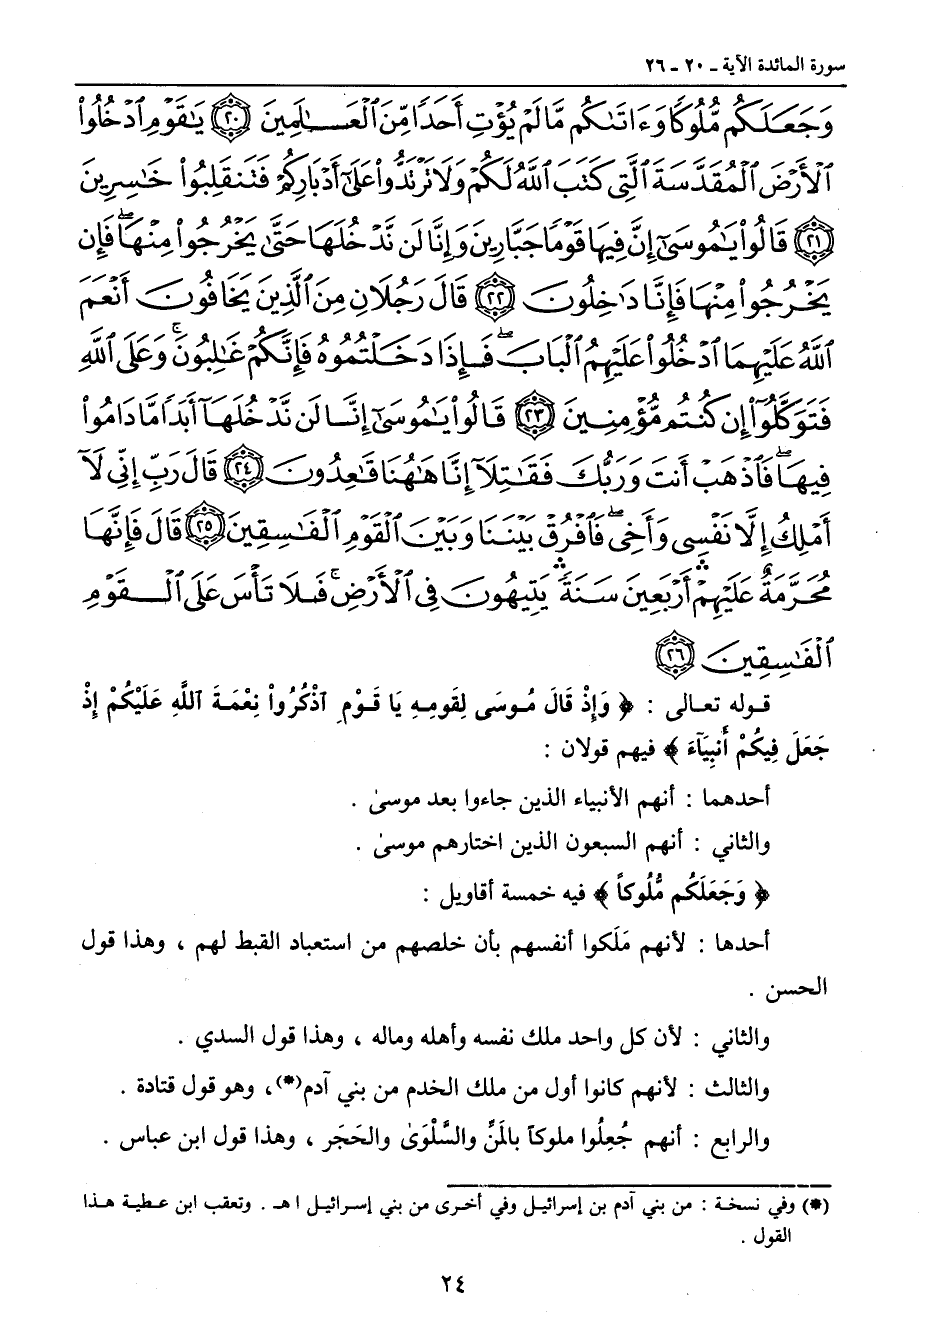 سورة المائدة الآية ـ ٢٠ ـ ٢٦
وَجَعَلَكُم مُّلُوكًا وَءَاتَىٰكُم مَّا لَمْ يُؤْتِ أَحَدًا مِّنَ ٱلْعَـٰلَمِينَ ﴿٢٠﴾ يَـٰقَوْمِ ٱدْخُلُوا۟
ٱلْأَرْضَ ٱلْمُقَدَّسَةَ ٱلَّتِى كَتَبَ ٱللَّهُ لَكُمْ وَلَا تَرْتَدُّوا۟ عَلَىٰٓ أَدْبَارِكُمْ فَتَنقَلِبُوا۟ خَـٰسِرِينَ
﴿٢١﴾ قَالُوا۟ يَـٰمُوسَىٰٓ إِنَّ فِيهَا قَوْمًا جَبَّارِينَ وَإِنَّا لَن نَّدْخُلَهَا حَتَّىٰ يَخْرُجُوا۟ مِنْهَا ۖ فَإِن
يَخْرُجُوا۟ مِنْهَا فَإِنَّا دَٰخِلُونَ ﴿٢٢﴾ قَالَ رَجُلَانِ مِنَ ٱلَّذِينَ يَخَافُونَ أَنْعَمَ
ٱللَّهُ عَلَيْهِمَا ٱدْخُلُوا۟ عَلَيْهِمُ ٱلْبَابَ ۖ فَإِذَا دَخَلْتُمُوهُ فَإِنَّكُمْ غَـٰلِبُونَ ۚ وَعَلَى ٱللَّهِ
فَتَوَكَّلُوٓا۟ إِن كُنتُم مُّؤْمِنِينَ ﴿٢٣﴾ قَالُوا۟ يَـٰمُوسَىٰٓ إِنَّا لَن نَّدْخُلَهَآ أَبَدًا مَّا دَامُوا۟
فِيهَا ۖ فَٱذْهَبْ أَنتَ وَرَبُّكَ فَقَـٰتِلَآ إِنَّا هَـٰهُنَا قَـٰعِدُونَ ﴿٢٤﴾ قَالَ رَبِّ إِنِّى لَآ
أَمْلِكُ إِلَّا نَفْسِى وَأَخِى ۖ فَٱفْرُقْ بَيْنَنَا وَبَيْنَ ٱلْقَوْمِ ٱلْفَـٰسِقِينَ ﴿٢٥﴾ قَالَ فَإِنَّهَا
مُحَرَّمَةٌ عَلَيْهِمْ ۛ أَرْبَعِينَ سَنَةً ۛ يَتِيهُونَ فِى ٱلْأَرْضِ ۚ فَلَا تَأْسَ عَلَى ٱلْقَوْمِ
ٱلْفَـٰسِقِينَ ﴿٢٦﴾
قوله تعالى : ﴿ وَإِذْ قَالَ مُوسَى لِقَومِهِ يَا قَوْمِ ٱذْكُرُواْ نِعْمَةَ ٱللَّهِ عَلَيْكُمْ إِذْ
جَعَلَ فِيكُمْ أَنبِيَآءَ ﴾ فيهم قولان :
أحدهما : أنهم الأنبياء الذين جاءوا بعد موسىٰ .
والثاني : أنهم السبعون الذين اختارهم موسىٰ .
﴿ وَجَعَلَكُم مُّلُوكاً ﴾ فيه خمسة أقاويل :
أحدها : لأنهم مَلَكوا أنفسهم بأن خلصهم من استعباد القبط لهم ، وهذا قول
الحسن .
والثاني : لأن كل واحد ملك نفسه وأهله وماله ، وهذا قول السدي .
والثالث : لأنهم كانوا أول من ملك الخدم من بني آدم(*)، وهو قول قتادة .
والرابع : أنهم جُعِلُوا ملوكاً بالمَنِّ والسَّلْوَىٰ والحَجَر ، وهذا قول ابن عباس .
(*) وفي نسخة : من بني آدم بن إسرائيل وفي أخرى من بني إسرائيل ا هـ . وتعقب ابن عطية هذا
القول .
٢٤